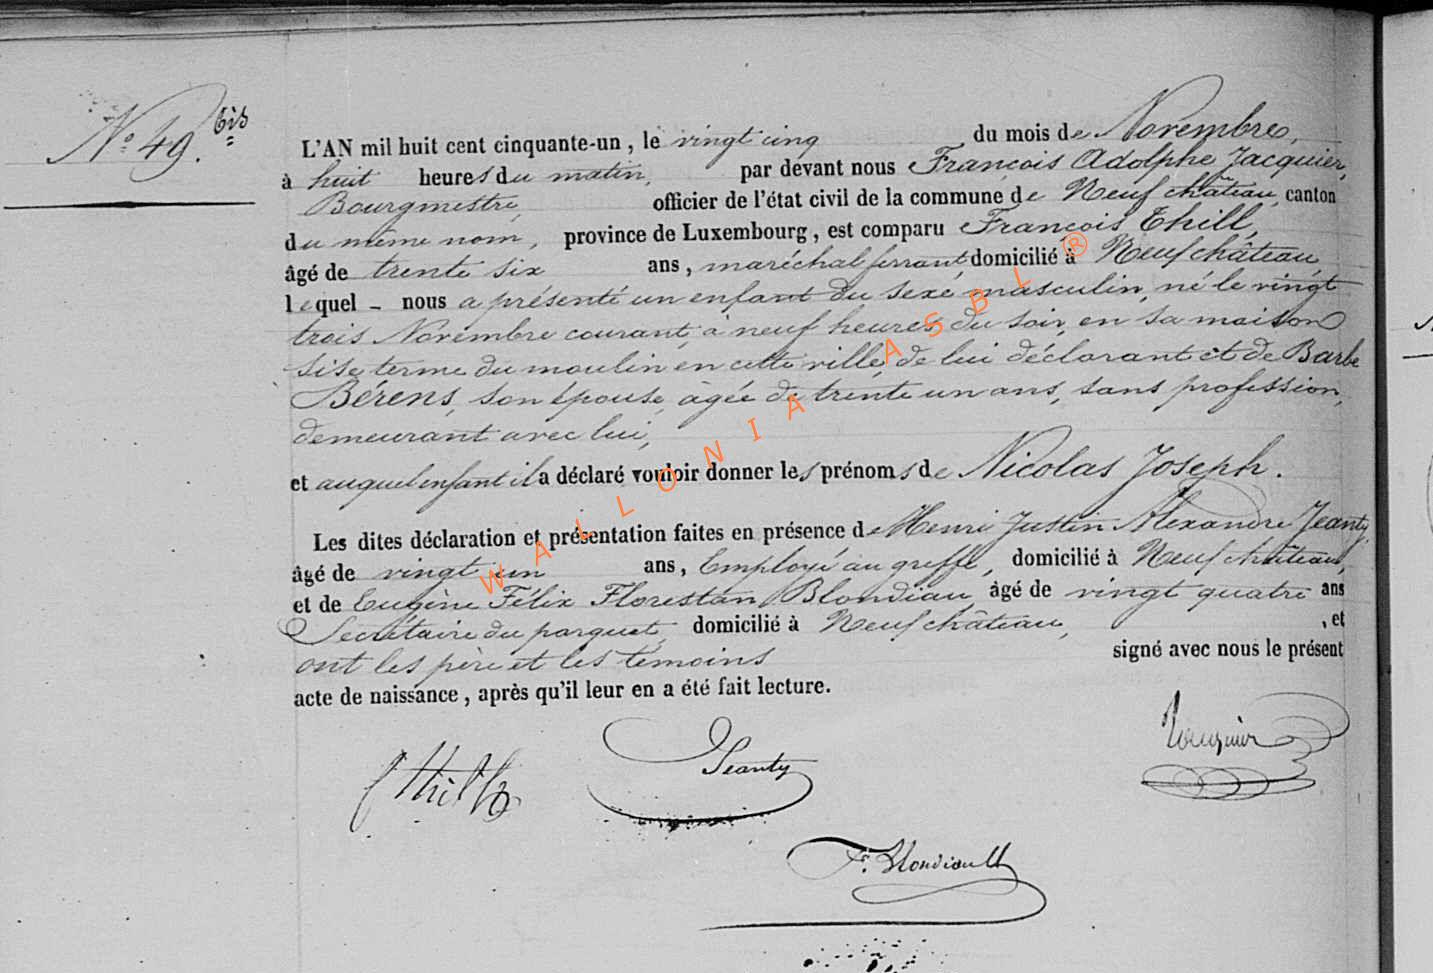 N° 49. bis
L'AN mil huit cent cinquante-un, le vingt cinq du mois de Novembre,
à huit heures du matin, par devant nous François Adolphe Jacquier,
Bourgmestre, officier de l'état civil de la commune de Neufchâteau, canton
du même nom, province de Luxembourg, est comparu François Thill,
âgé de trente six ans, maréchal ferrant domicilié à Neufchâteau
lequel - nous a présenté un enfant du sexe masculin, né le vingt
trois Novembre courant, à neuf heures du soir, en sa maison
sise terme du moulin en cette ville, de lui déclarant et de Barbe
Bérens, son épouse, âgée de trente un ans, sans profession,
demeurant avec lui,
et auquel enfant il a déclaré vouloir donner les prénoms de Nicolas Joseph.
Les dites déclaration et présentation faites en présence de Henri Justin Alexandre Jeanty,
âgé de vingt un ans, Employé au greffe, domicilié à Neufchâteau,
et de Eugène Félix Florestan Blondiau, âgé de vingt quatre ans
Secrétaire du parquet, domicilié à Neufchâteau, , et
ont les père et les témoins signé avec nous le présent
acte de naissance, après qu'il leur en a été fait lecture.
WALLONIA ASBL ®
Jeanty